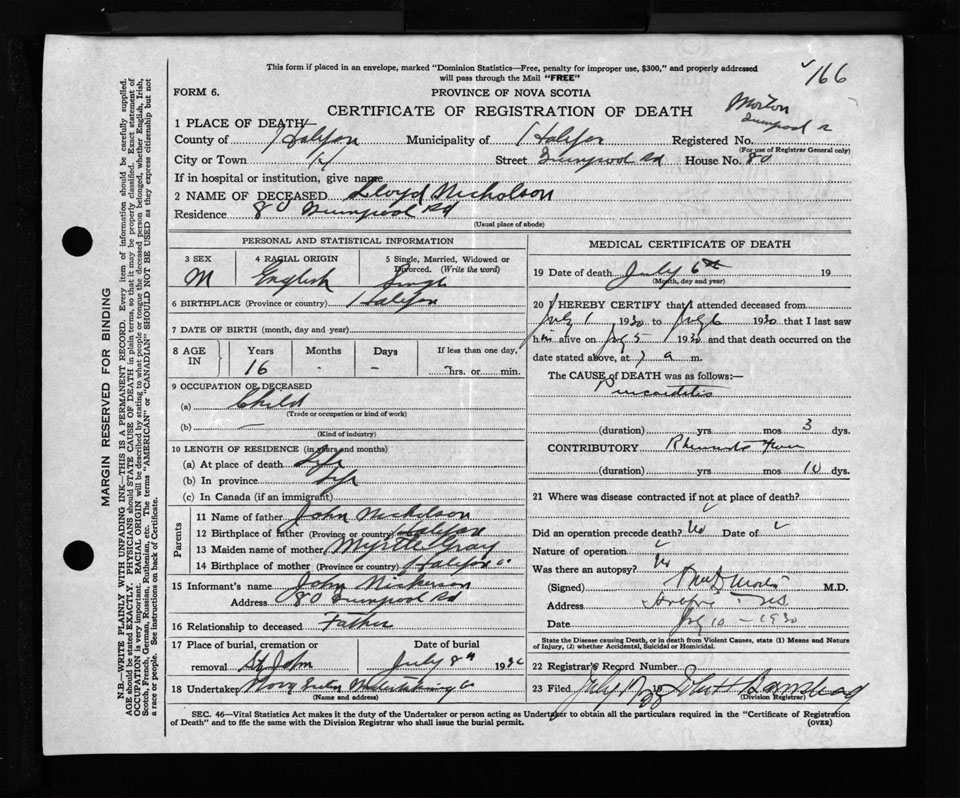 This form if placed in an envelope, marked "Dominion Statistics—Free, penalty for improper use, $300," and properly addressed
will pass through the Mail "FREE"
166
FORM 6.
PROVINCE OF NOVA SCOTIA
CERTIFICATE OF REGISTRATION OF DEATH
Morton
1 PLACE OF DEATH
County of Halifax Municipality of Halifax Registered No.
(For use of Registrar General only)
City or Town Street Rd House No. 80
If in hospital or institution, give name
2 NAME OF DECEASED Lloyd Nicholson
Residence 80 Rd
(Usual place of abode)
PERSONAL AND STATISTICAL INFORMATION
3 SEX 4 RACIAL ORIGIN 5 Single, Married, Widowed or Divorced. (Write the word)
M English Single
6 BIRTHPLACE (Province or country) Halifax
7 DATE OF BIRTH (month, day and year)
8 AGE IN Years Months Days If less than one day,
16 - - hrs. or min.
9 OCCUPATION OF DECEASED
(a) Child
(Trade or occupation or kind of work)
(b) —
(Kind of industry)
10 LENGTH OF RESIDENCE (in years and months)
(a) At place of death Life
(b) In province Life
(c) In Canada (if an immigrant)
Parents
11 Name of father John Nickolson
12 Birthplace of father (Province or country) Halifax
13 Maiden name of mother Myrtle Gray
14 Birthplace of mother (Province or country) Halifax Co
15 Informant's name John Nickerson
Address 80 Rd
16 Relationship to deceased Father
17 Place of burial, cremation or Date of burial
removal St John July 8th 1930
18 Undertaker Nova Undertaking Co
(Name and address)
MEDICAL CERTIFICATE OF DEATH
19 Date of death July 6th 19
(Month, day and year)
20 I HEREBY CERTIFY that I attended deceased from
July 1 1930 to July 6 1930 that I last saw
him alive on July 5 1930 and that death occurred on the
date stated above, at 7 a m.
The CAUSE of DEATH was as follows:—
Pericarditis
(duration) yrs mos 3 dys.
CONTRIBUTORY Rheumatic Fever
(duration) yrs mos 10 dys.
21 Where was disease contracted if not at place of death?
Did an operation precede death? No Date of
Nature of operation
Was there an autopsy? No
(Signed) M.D.
Address
Date July 10 - 1930
State the Disease causing Death, or in death from Violent Causes, state (1) Means and Nature
of Injury, (2) whether Accidental, Suicidal or Homicidal.
22 Registrar's Record Number
23 Filed July 19
(Division Registrar)
SEC. 46—Vital Statistics Act makes it the duty of the Undertaker or person acting as Undertaker to obtain all the particulars required in the "Certificate of Registration
of Death" and to file the same with the Division Registrar who shall issue the burial permit. (OVER)
MARGIN RESERVED FOR BINDING
N.B.—WRITE PLAINLY WITH UNFADING INK—THIS IS A PERMANENT RECORD. Every item of information should be carefully supplied.
AGE should be stated EXACTLY. PHYSICIANS should STATE CAUSE OF DEATH in plain terms, so that it may be properly classified. Exact statement of
OCCUPATION is very important. RACIAL ORIGIN will be described by stating to what people or tongue the deceased person belonged, whether English, Irish,
Scotch, French, German, Russian, Ruthenian, etc. The terms "AMERICAN" or "CANADIAN" SHOULD NOT BE USED as they express citizenship but not
a race or people. See instructions on back of Certificate.